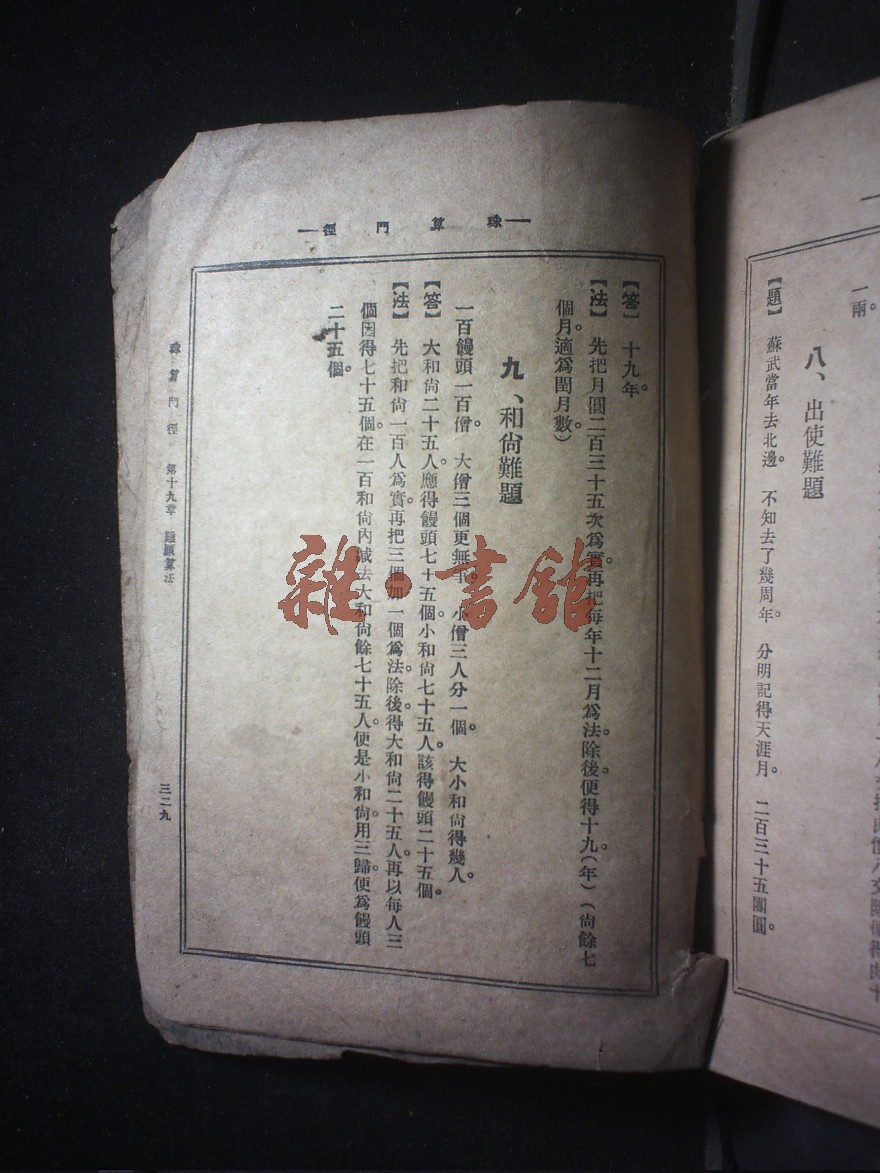 一兩。
八、出使難題
【題】 蘇武當年去北邊。 不知去了幾周年。 分明記得天涯月。 二百三十五團圓。
—珠算門徑—
【答】 十九年。
【法】 先把月圓二百三十五次爲實。再把每年十二月爲法。除後。便得十九(年)(尙餘七
個月適爲閏月數)
九、和尙難題
一百饅頭一百僧。 大僧三個更無爭。 小僧三人分一個。 大小和尙得幾人。
【答】 大和尙二十五人。應得饅頭七十五個。小和尙七十五人。該得饅頭二十五個。
【法】 先把和尙一百人爲實。再把三個加一個爲法。除後。得大和尙二十五人。再以每人三
個因得七十五個。在一百和尙內減去大和尙餘七十五人。便是小和尙。用三歸。便爲饅頭
二十五個。
珠算門徑 第十九章 難題算法
三二九
雜·書館